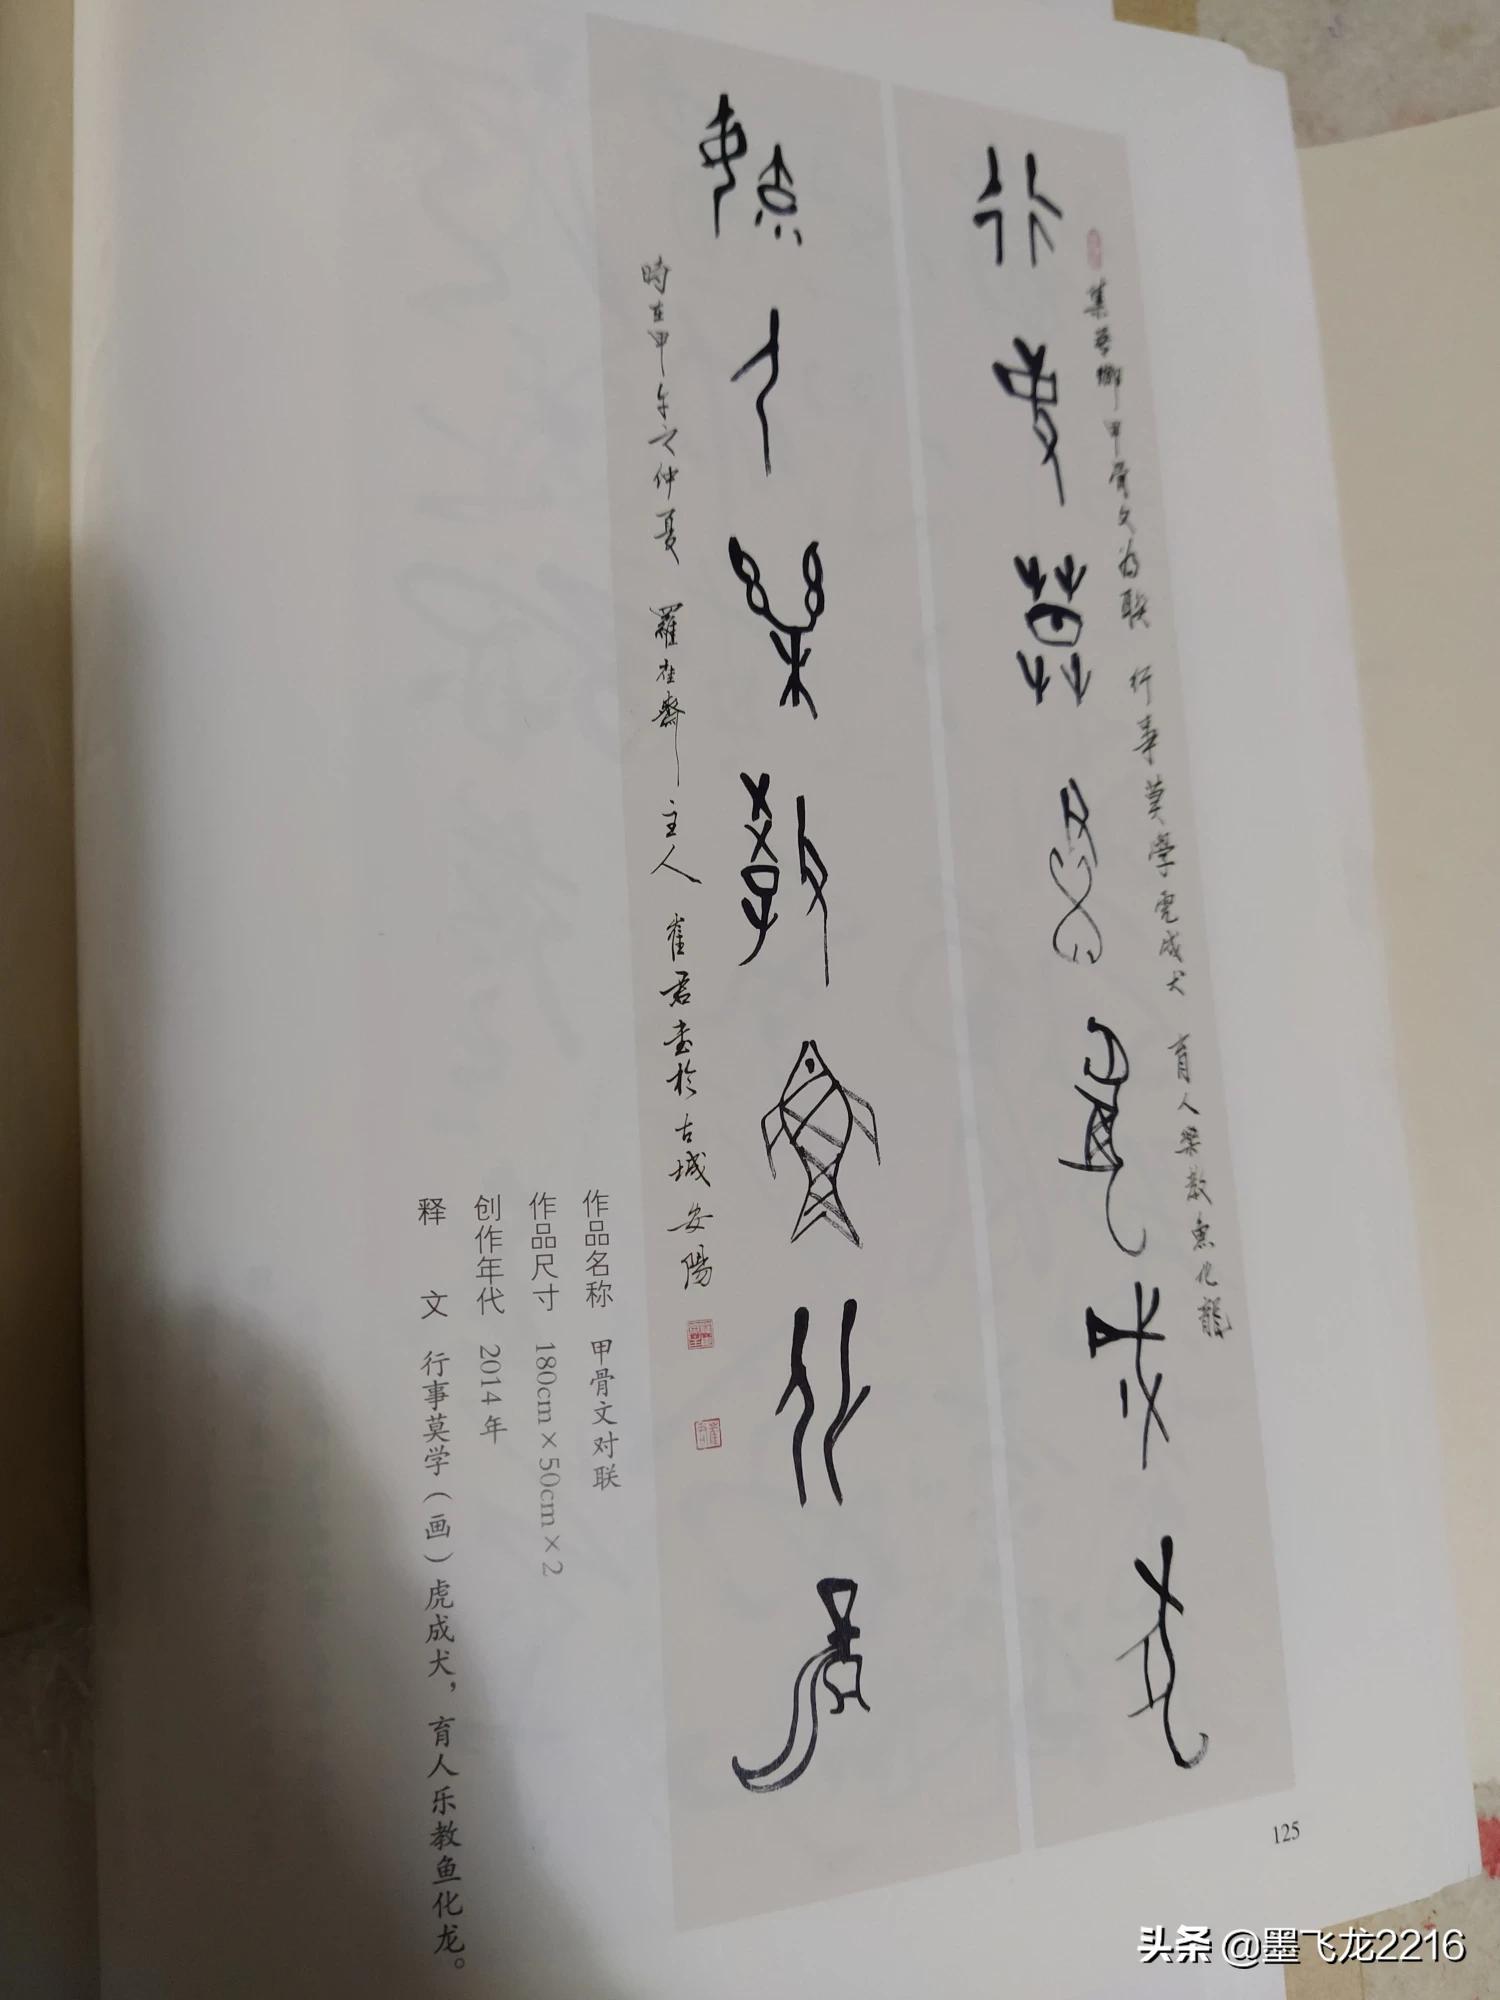 行事莫学虎成犬
集殷卿甲骨文为联 行事莫學虎成犬 育人樂教魚化龍
育人樂教魚化龍
時在甲午之仲夏 羅雀齋主人 崔君書於古城安陽
作品名称 甲骨文对联
作品尺寸 180cm×50cm×2
创作年代 2014年
释文 行事莫学（画）虎成犬，育人乐教鱼化龙。
125
头条 @墨飞龙2216